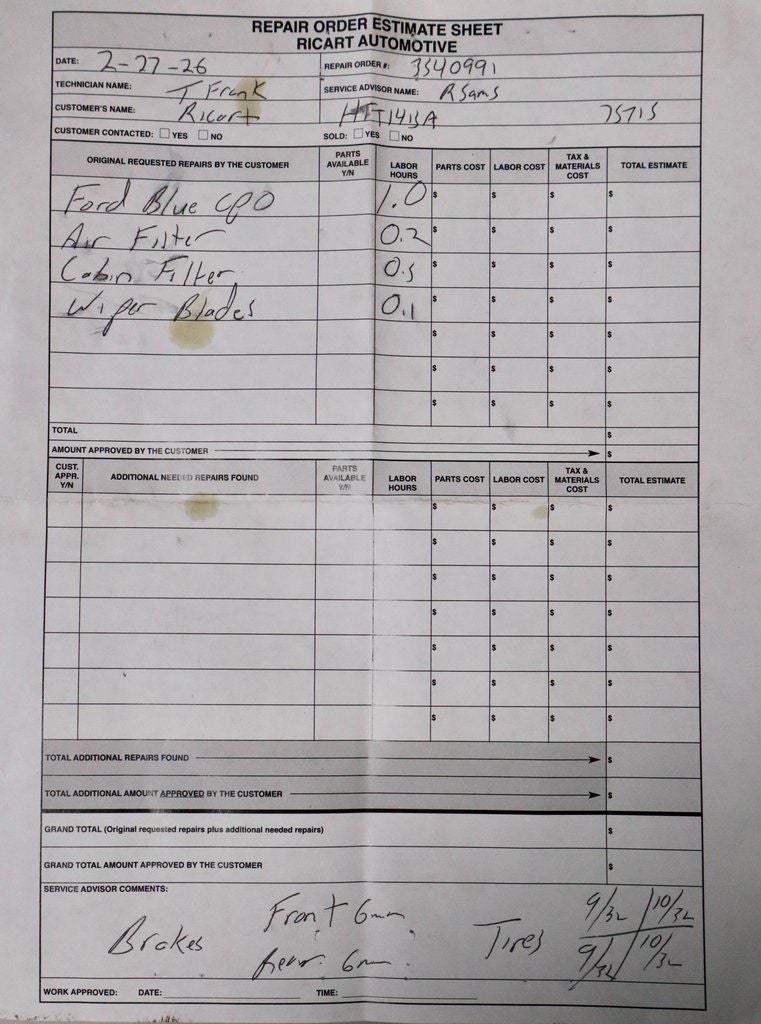 REPAIR ORDER ESTIMATE SHEET
RICART AUTOMOTIVE
DATE: 2-27-26 REPAIR ORDER #: 3540991
TECHNICIAN NAME: T Frank SERVICE ADVISOR NAME: R Sams
CUSTOMER'S NAME: Ricart HTT1413A 75715
CUSTOMER CONTACTED: YES NO SOLD: YES NO
ORIGINAL REQUESTED REPAIRS BY THE CUSTOMER PARTS AVAILABLE Y/N LABOR HOURS PARTS COST LABOR COST TAX & MATERIALS COST TOTAL ESTIMATE
Ford Blue CPO 1.0 $ $ $ $
Air Filter 0.2 $ $ $ $
Cabin Filter 0.5 $ $ $ $
Wiper Blades 0.1 $ $ $ $
$ $ $ $
$ $ $ $
$ $ $ $
TOTAL $
AMOUNT APPROVED BY THE CUSTOMER $
CUST. APPR. Y/N ADDITIONAL NEEDED REPAIRS FOUND PARTS AVAILABLE Y/N LABOR HOURS PARTS COST LABOR COST TAX & MATERIALS COST TOTAL ESTIMATE
$ $ $ $
$ $ $ $
$ $ $ $
$ $ $ $
$ $ $ $
$ $ $ $
$ $ $ $
TOTAL ADDITIONAL REPAIRS FOUND $
TOTAL ADDITIONAL AMOUNT APPROVED BY THE CUSTOMER $
GRAND TOTAL (Original requested repairs plus additional needed repairs) $
GRAND TOTAL AMOUNT APPROVED BY THE CUSTOMER $
SERVICE ADVISOR COMMENTS:
Brakes Front 6mm Tires 9/32 10/32
Rear 6mm 9/32 10/32
WORK APPROVED: DATE: TIME: